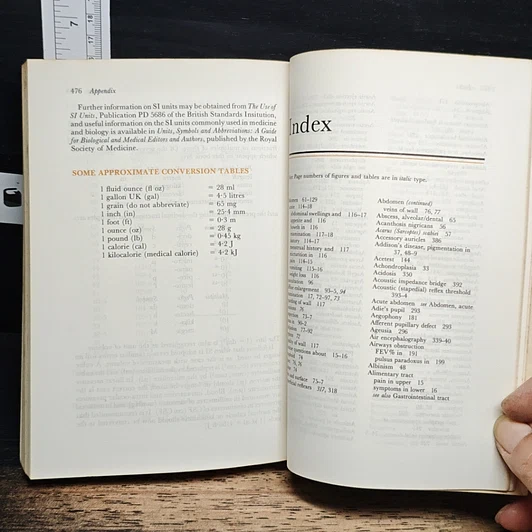 476 Appendix
Further information on SI units may be obtained from The Use of
SI Units, Publication PD 5686 of the British Standards Insitution,
and useful information on the SI units commonly used in medicine
and biology is available in Units, Symbols and Abbreviations: A Guide
for Biological and Medical Editors and Authors, published by the Royal
Society of Medicine.
SOME APPROXIMATE CONVERSION TABLES
1 fluid ounce (fl oz) = 28 ml
1 gallon UK (gal) = 4·5 litres
1 grain (do not abbreviate) = 65 mg
1 inch (in) = 25·4 mm
1 foot (ft) = 0·3 m
1 ounce (oz) = 28 g
1 pound (lb) = 0·45 kg
1 calorie (cal) = 4·2 J
1 kilocalorie (medical calorie) = 4·2 kJ
Index
Page numbers of figures and tables are in italic type.
61–129
114–18
abdominal swellings and 116–17
and 116
in 116
117–18
114–17
history and 117
in 116
114–15
115–16
loss 116
96
enlargement 93–5, 94
17, 72–97, 73
of wall 117
76
73–7
90–2
77–92
77
of wall 117
questions about 15–16
74
74, 76
74
surface 75–7
reflexes 317, 318
Abdomen (continued)
veins of wall 76, 77
Abscess, alveolar/dental 65
Acanthosis nigricans 36
Acarus (Sarcoptes) scabiei 57
Accessory auricles 386
Addison's disease, pigmentation in
37, 48–9
Acetest 144
Achondroplasia 33
Acidosis 350
Acoustic impedance bridge 392
Acoustic (stapedial) reflex threshold
393–4
Acute abdomen see Abdomen, acute
Adie's pupil 293
Aegophony 181
Afferent pupillary defect 293
Agnosia 296
Air encephalography 339–40
Airways obstruction
FEV% in 191
pulsus paradoxus in 199
Albinism 48
Alimentary tract
pain in upper 15
symptoms in lower 16
see also Gastrointestinal tract
7
17
18